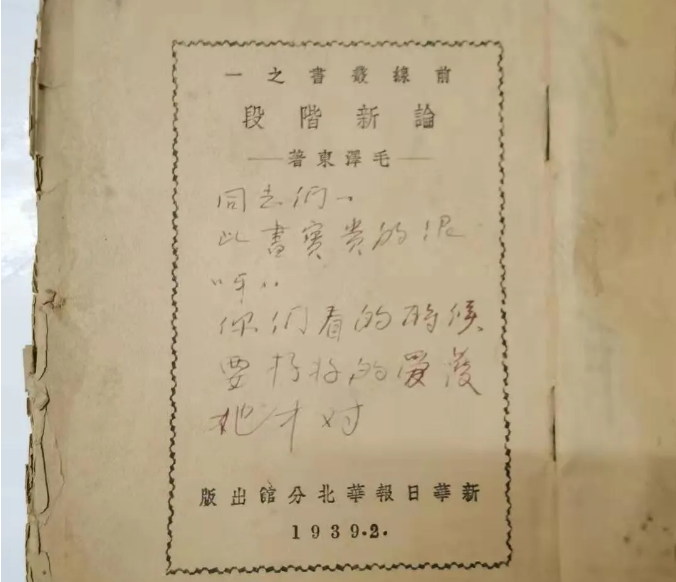 前線叢書之一
論新階段
毛澤東著
同志们
此書寶貴的很
呀
你們看的時候
要好好的愛護
才对
新華日報華北分館出版
1939.2.